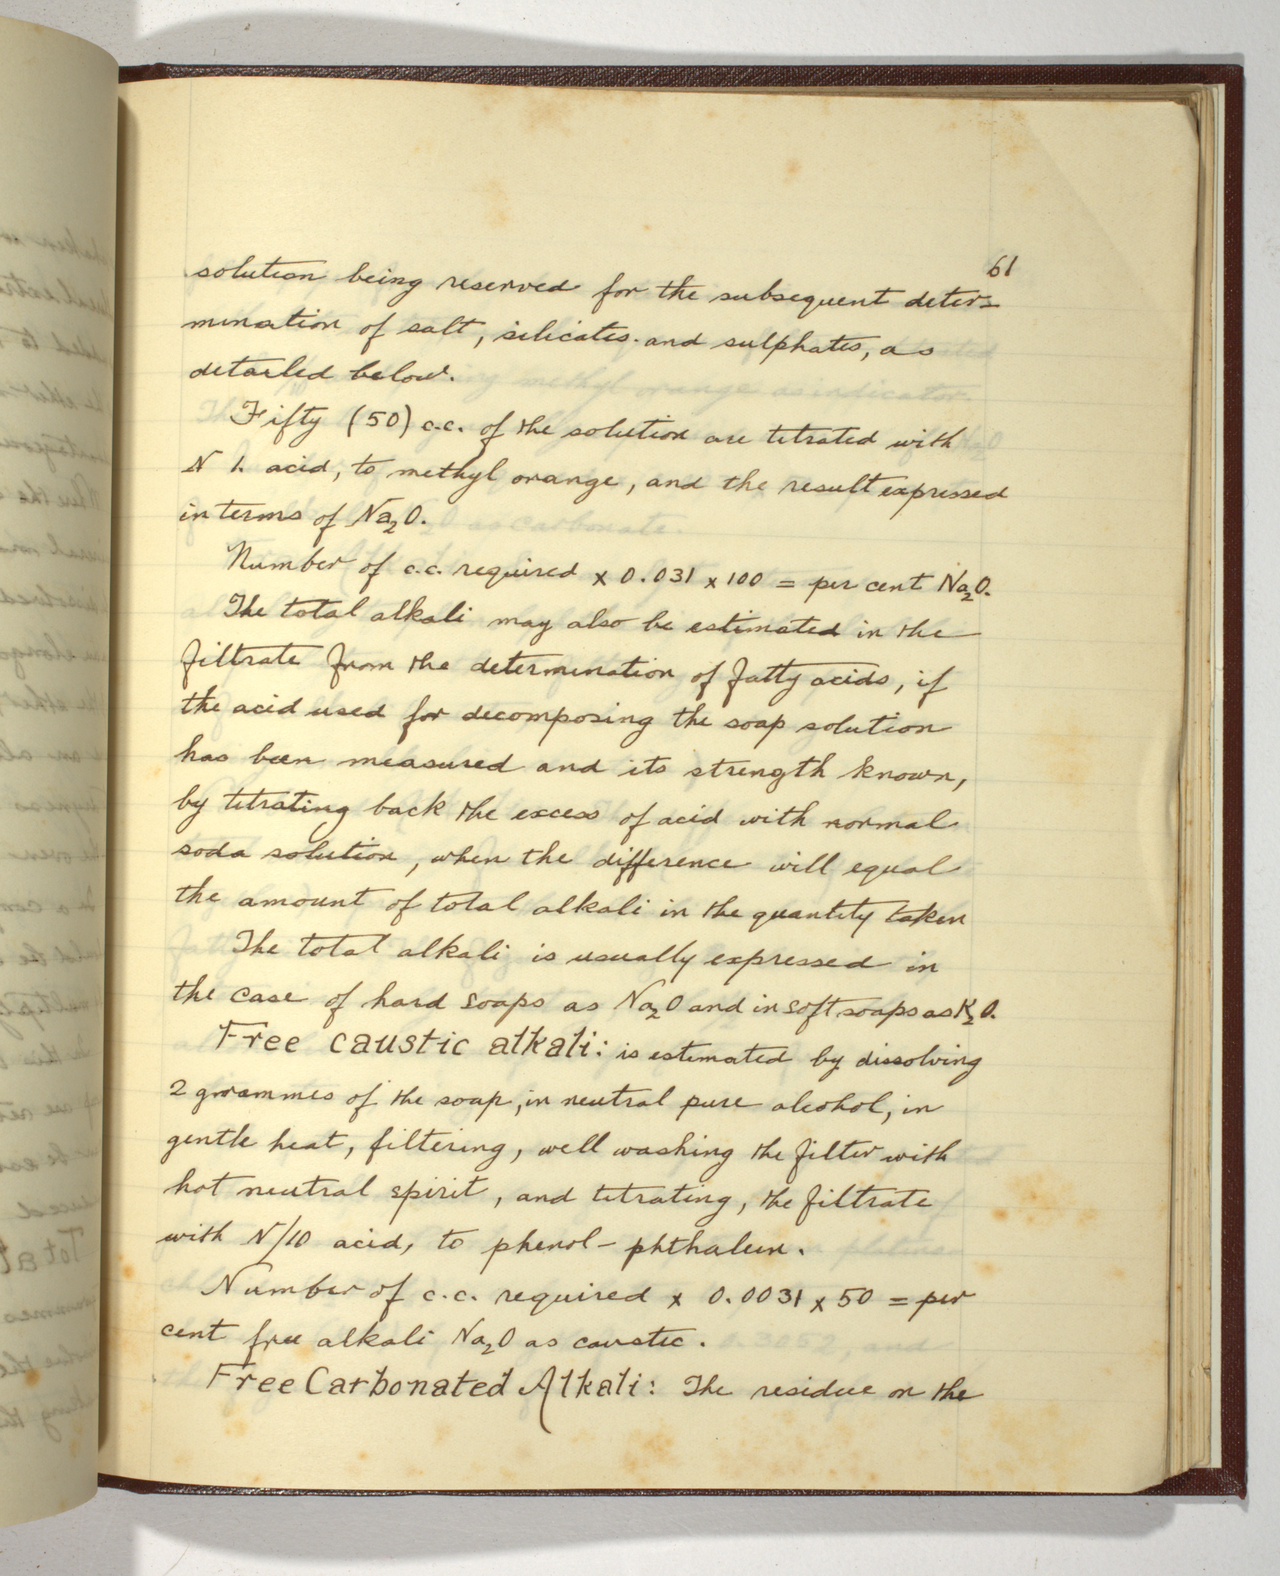 61
solution being reserved for the subsequent deter=
mination of salt, silicates and sulphates, as
detailed below.
Fifty (50) c.c. of the solution are titrated with
N 1. acid, to methyl orange, and the result expressed
in terms of Na₂O.
Number of c.c. required x 0.031 x 100 = per cent Na₂O.
The total alkali may also be estimated in the
filtrate from the determination of fatty acids, if
the acid used for decomposing the soap solution
has been measured and its strength known,
by titrating back the excess of acid with normal
soda solution, when the difference will equal
the amount of total alkali in the quantity taken
The total alkali is usually expressed in
the case of hard soaps as Na₂O and in soft soaps as K₂O.
Free caustic alkali: is estimated by dissolving
2 grammes of the soap, in neutral pure alcohol, in
gentle heat, filtering, well washing the filter with
hot neutral spirit, and titrating, the filtrate
with N/10 acid, to phenol-phthalein.
Number of c.c. required x 0.0031 x 50 = per
cent free alkali Na₂O as caustic.
Free Carbonated Alkali: The residue on the